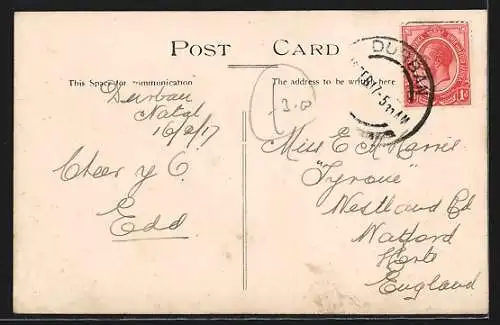 POST CARD
This Space for communication
The address to be written here
Durban
Natal
16/2/17
Cheer y O.
Edd
3.0
DURBAN
FEB 17-5
AM
1D
Miss E M Harris
"Tyrone"
Westland Rd
Watford
Herts
England